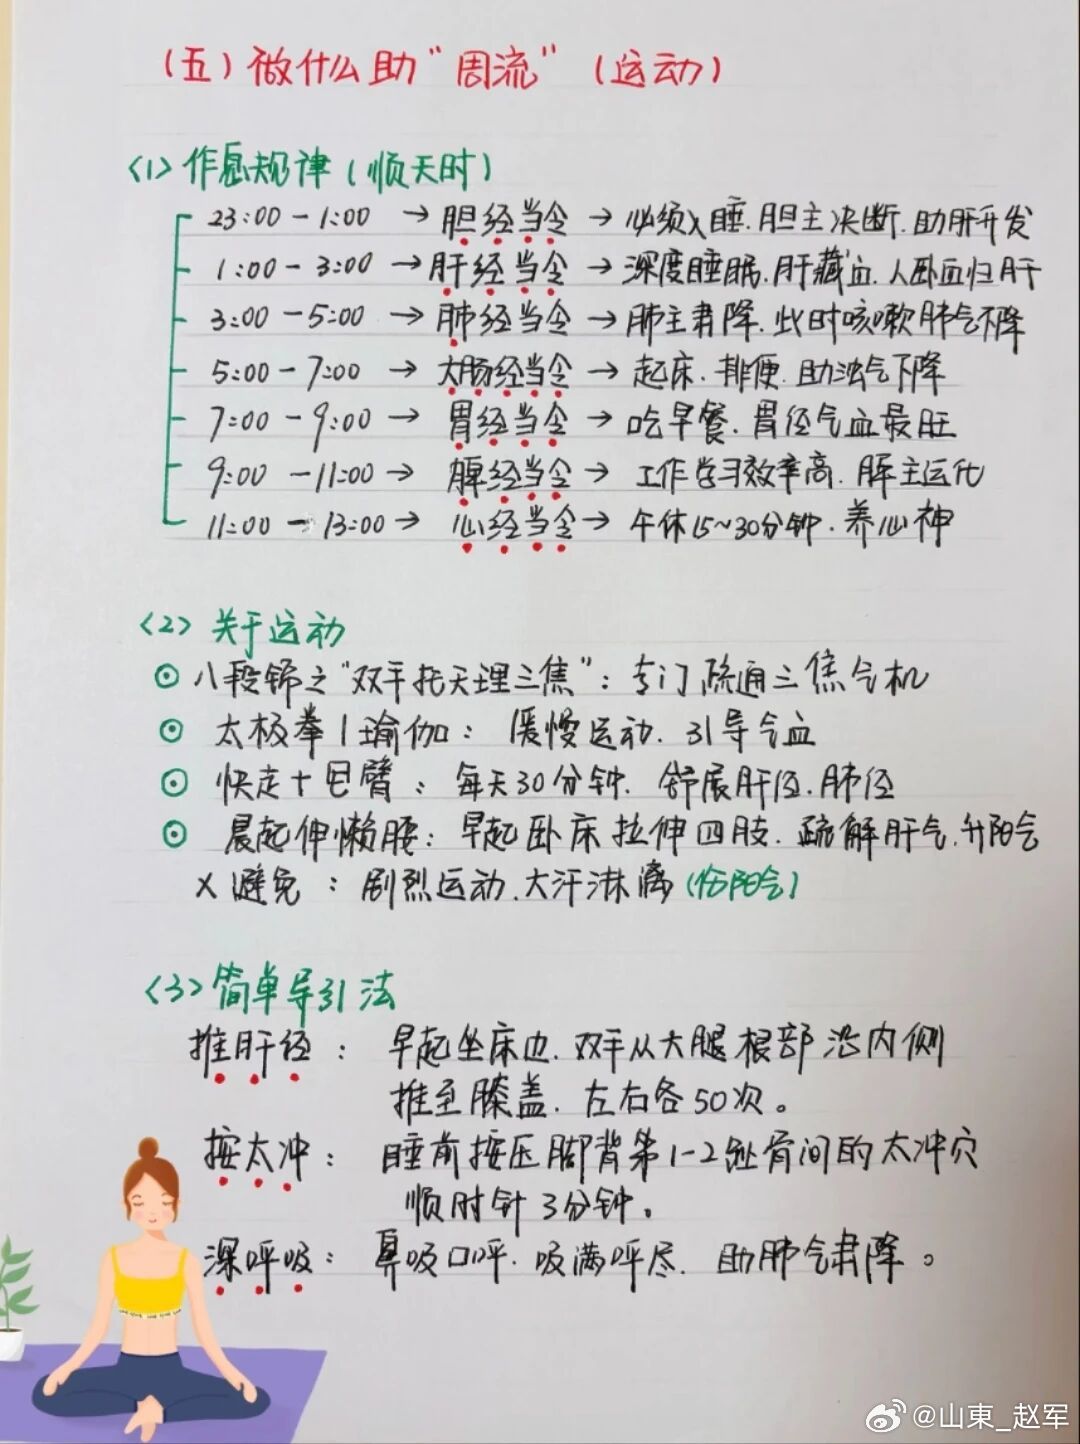 （五）做什么助“周流”（运动）
〈1〉作息规律（顺天时）
23:00－1:00 → 胆经当令 → 必须入睡.胆主决断.助肝升发
1:00－3:00 → 肝经当令 → 深度睡眠.肝藏血.人卧血归肝
3:00－5:00 → 肺经当令 → 肺主肃降.此时咳嗽肺气不降
5:00－7:00 → 大肠经当令 → 起床.排便.助浊气下降
7:00－9:00 → 胃经当令 → 吃早餐.胃经气血最旺
9:00－11:00 → 脾经当令 → 工作学习效率高.脾主运化
11:00－13:00 → 心经当令 → 午休15~30分钟.养心神
〈2〉关于运动
⊙ 八段锦之“双手托天理三焦”：专门疏通三焦气机
⊙ 太极拳/瑜伽：缓慢运动.引导气血
⊙ 快走+甩臂：每天30分钟.舒展肝经.肺经
⊙ 晨起伸懒腰：早起卧床拉伸四肢.疏解肝气.升阳气
×避免：剧烈运动.大汗淋漓（伤阳气）
〈3〉简单导引法
推肝经：早起坐床边.双手从大腿根部沿内侧
推至膝盖.左右各50次。
按太冲：睡前按压脚背第1-2趾骨间的太冲穴
顺时针3分钟。
深呼吸：鼻吸口呼.吸满呼尽.助肺气肃降。
@山東_赵军